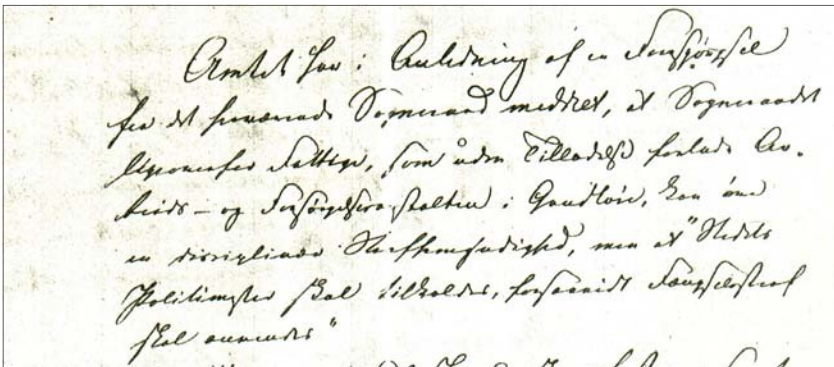 Amtet har i Anledning af en Forespørgsel
fra det herværende Sogneraad meddelt, at Sogneraadet
ligeoverfor Fattige, som uden Tilladelse forlade Ar-
beids- og Forsørgelsesanstalten i Gandløse, kan øve
en disciplinær Straffemyndighed, men at "Stedets
Politimester skal tilkaldes, forsaavidt Fængselsstraf
skal anvendes"